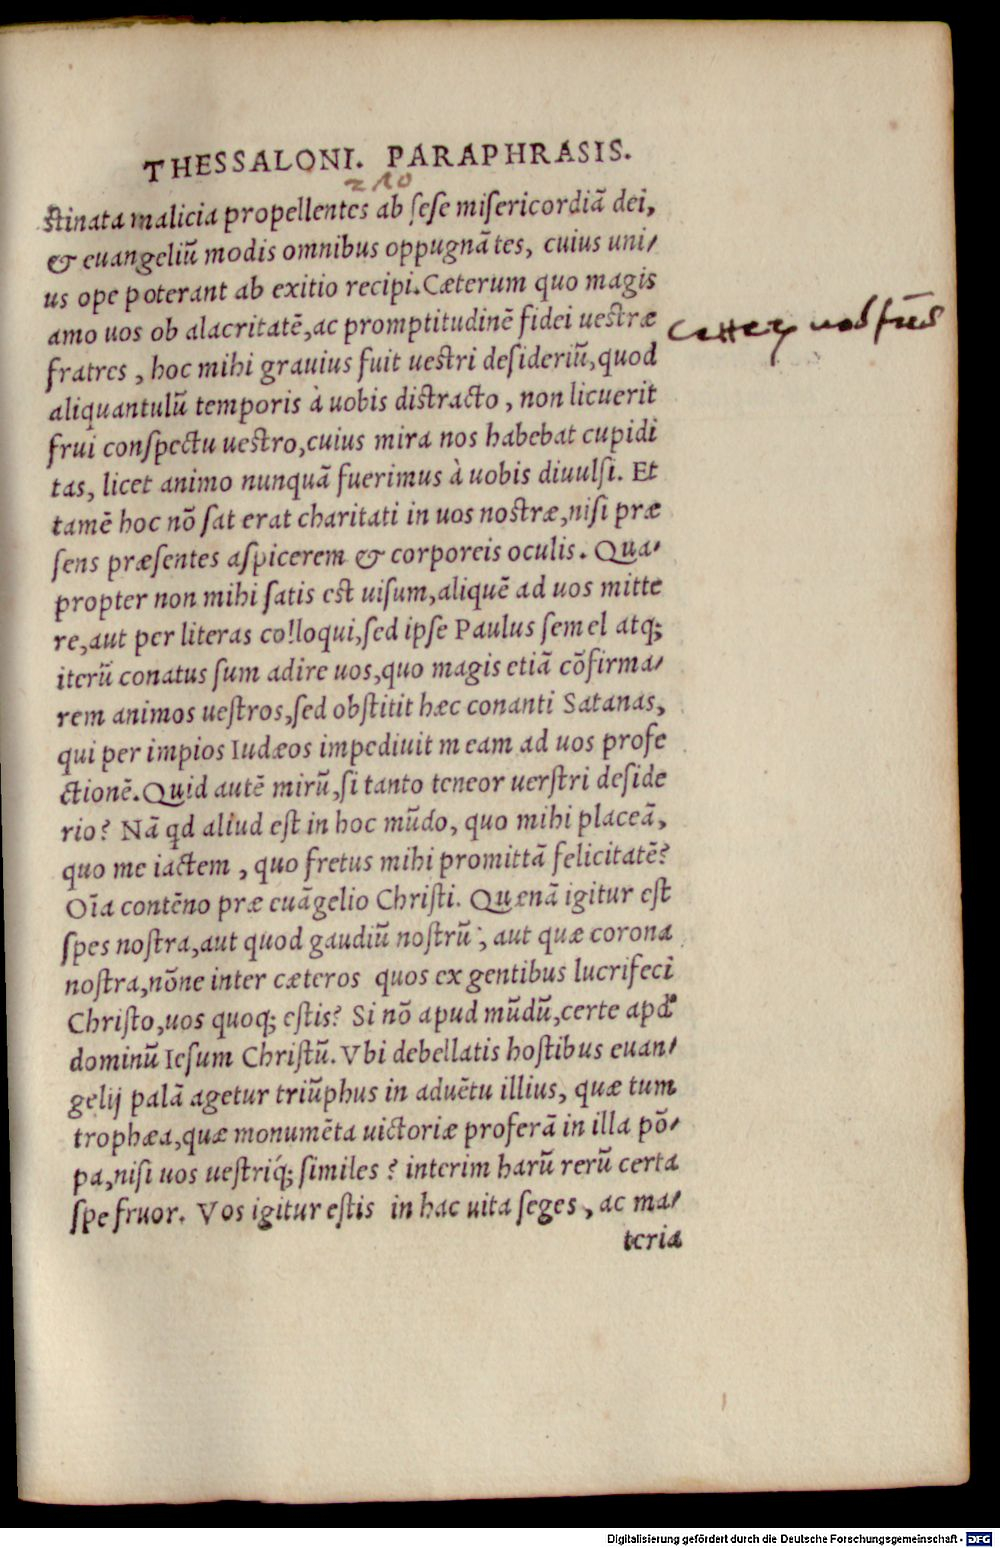 THESSALONI. PARAPHRASIS.
210
stinata malicia propellentes ab sese misericordiā dei,
& euangeliū modis omnibus oppugnātes, cuius uni-
us ope poterant ab exitio recipi. Cæterum quo magis
amo uos ob alacritatē, ac promptitudinē fidei uestræ
fratres, hoc mihi grauius fuit uestri desideriū, quod
aliquantulū temporis à uobis distracto, non licuerit
frui conspectu uestro, cuius mira nos habebat cupidi
tas, licet animo nunquā fuerimus à uobis diuulsi. Et
tamē hoc nō sat erat charitati in uos nostræ, nisi præ
sens præsentes aspicerem & corporeis oculis. Qua-
propter non mihi satis est uisum, aliquē ad uos mitte
re, aut per literas colloqui, sed ipse Paulus semel atq;
iterū conatus sum adire uos, quo magis etiā cōfirma-
rem animos uestros, sed obstitit hæc conanti Satanas,
qui per impios Iudæos impediuit meam ad uos profe
ctionē. Quid autē mirū, si tanto teneor uerstri deside
rio? Nā qd aliud est in hoc mūdo, quo mihi placeā,
quo me iactem, quo fretus mihi promittā felicitatē?
Oīa contēno præ euāgelio Christi. Quænā igitur est
spes nostra, aut quod gaudiū nostrū, aut quæ corona
nostra, nōne inter cæteros quos ex gentibus lucrifeci
Christo, uos quoq; estis? Si nō apud mūdū, certe apd
dominū Iesum Christū. Vbi debellatis hostibus euan-
gelij palā agetur triūphus in aduētu illius, quæ tum
trophæa, quæ monumēta uictoriæ proferā in illa pō-
pa, nisi uos uestriq́; similes? interim harū rerū certa
spe fruor. Vos igitur estis in hac uita seges, ac ma-
teria
Digitalisierung gefördert durch die Deutsche Forschungsgemeinschaft - DFG